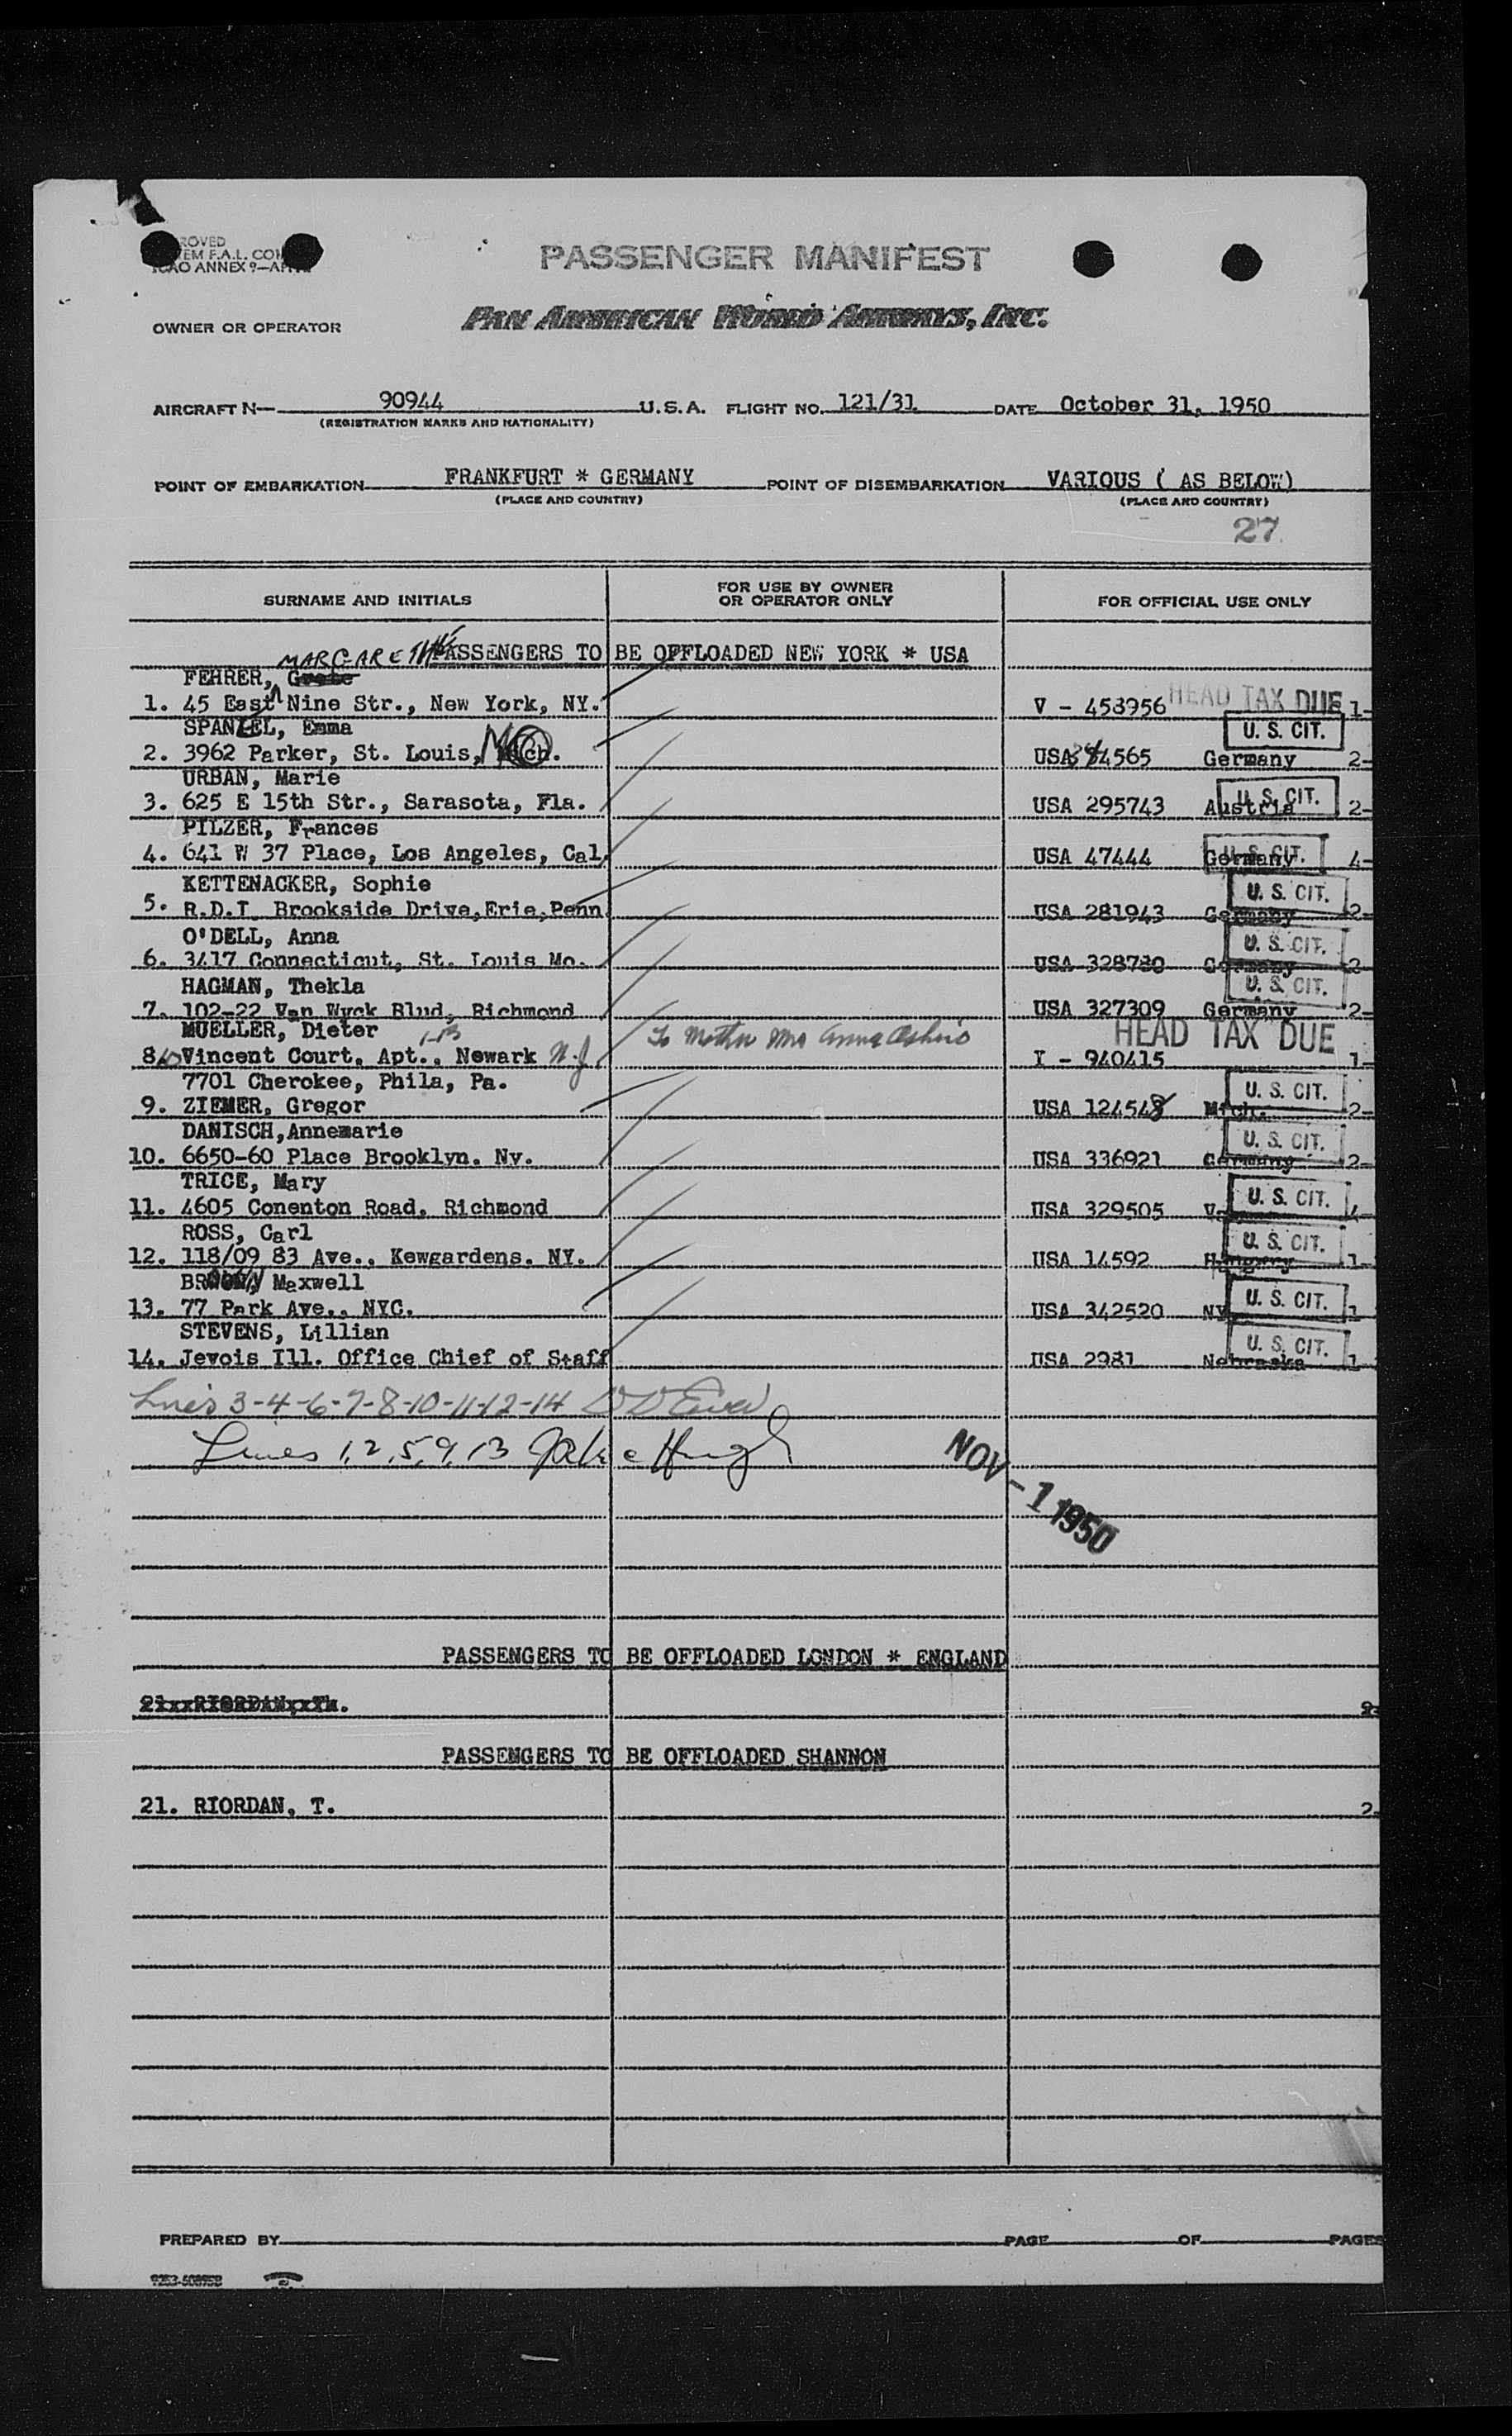 PASSENGER MANIFEST
OWNER OR OPERATOR PAN AMERICAN WORLD AIRWAYS, INC.
AIRCRAFT N— 90944 U.S.A. FLIGHT NO. 121/31 DATE October 31, 1950
(REGISTRATION MARKS AND NATIONALITY)
POINT OF EMBARKATION FRANKFURT * GERMANY POINT OF DISEMBARKATION VARIOUS ( AS BELOW)
(PLACE AND COUNTRY) (PLACE AND COUNTRY)
27
SURNAME AND INITIALS FOR USE BY OWNER OR OPERATOR ONLY FOR OFFICIAL USE ONLY
PASSENGERS TO BE OFFLOADED NEW YORK * USA
MARGARETHE
FEHRER, Grete
1. 45 East Nine Str., New York, NY. V - 453956 HEAD TAX DUE 1-
SPANZEL, Emma U. S. CIT.
2. 3962 Parker, St. Louis, MO USA 344565 Germany 2-
URBAN, Marie
3. 625 E 15th Str., Sarasota, Fla. USA 295743 Austria U. S. CIT. 2-
PILZER, Frances
4. 641 W 37 Place, Los Angeles, Cal. USA 47444 Germany U. S. CIT. 4-
KETTENACKER, Sophie U. S. CIT.
5. R.D.I. Brookside Drive, Erie, Penn USA 281943 Germany 2-
O'DELL, Anna U. S. CIT.
6. 3417 Connecticut, St. Louis Mo. USA 328780 Germany 2-
HAGMAN, Thekla U. S. CIT.
7. 102-22 Van Wyck Blvd, Richmond USA 327309 Germany 2-
MUELLER, Dieter To Mother Mrs Anna HEAD TAX DUE
8. Vincent Court, Apt., Newark N.J. I - 940415 1-
7701 Cherokee, Phila, Pa. U. S. CIT.
9. ZIEMER, Gregor USA 124548 Mich. 2-
DANISCH, Annemarie U. S. CIT.
10. 6650-60 Place Brooklyn. Ny. USA 336921 Germany 2-
TRICE, Mary U. S. CIT.
11. 4605 Conenton Road, Richmond USA 329505
ROSS, Carl U. S. CIT.
12. 118/09 83 Ave., Kewgardens. NY. USA 14592 Hungary 1-
Maxwell U. S. CIT.
13. 77 Park Ave., NYC. USA 342520 NY 1
STEVENS, Lillian U. S. CIT.
14. Jevois Ill. Office Chief of Staff USA 2981 Nebraska 1
Lines 3-4-6-7-8-10-11-12-14
Lines 1, 2, 5, 9, 13
NOV - 1 1950
PASSENGERS TO BE OFFLOADED LONDON * ENGLAND
PASSENGERS TO BE OFFLOADED SHANNON
21. RIORDAN, T. 2
PREPARED BY PAGE OF PAGES